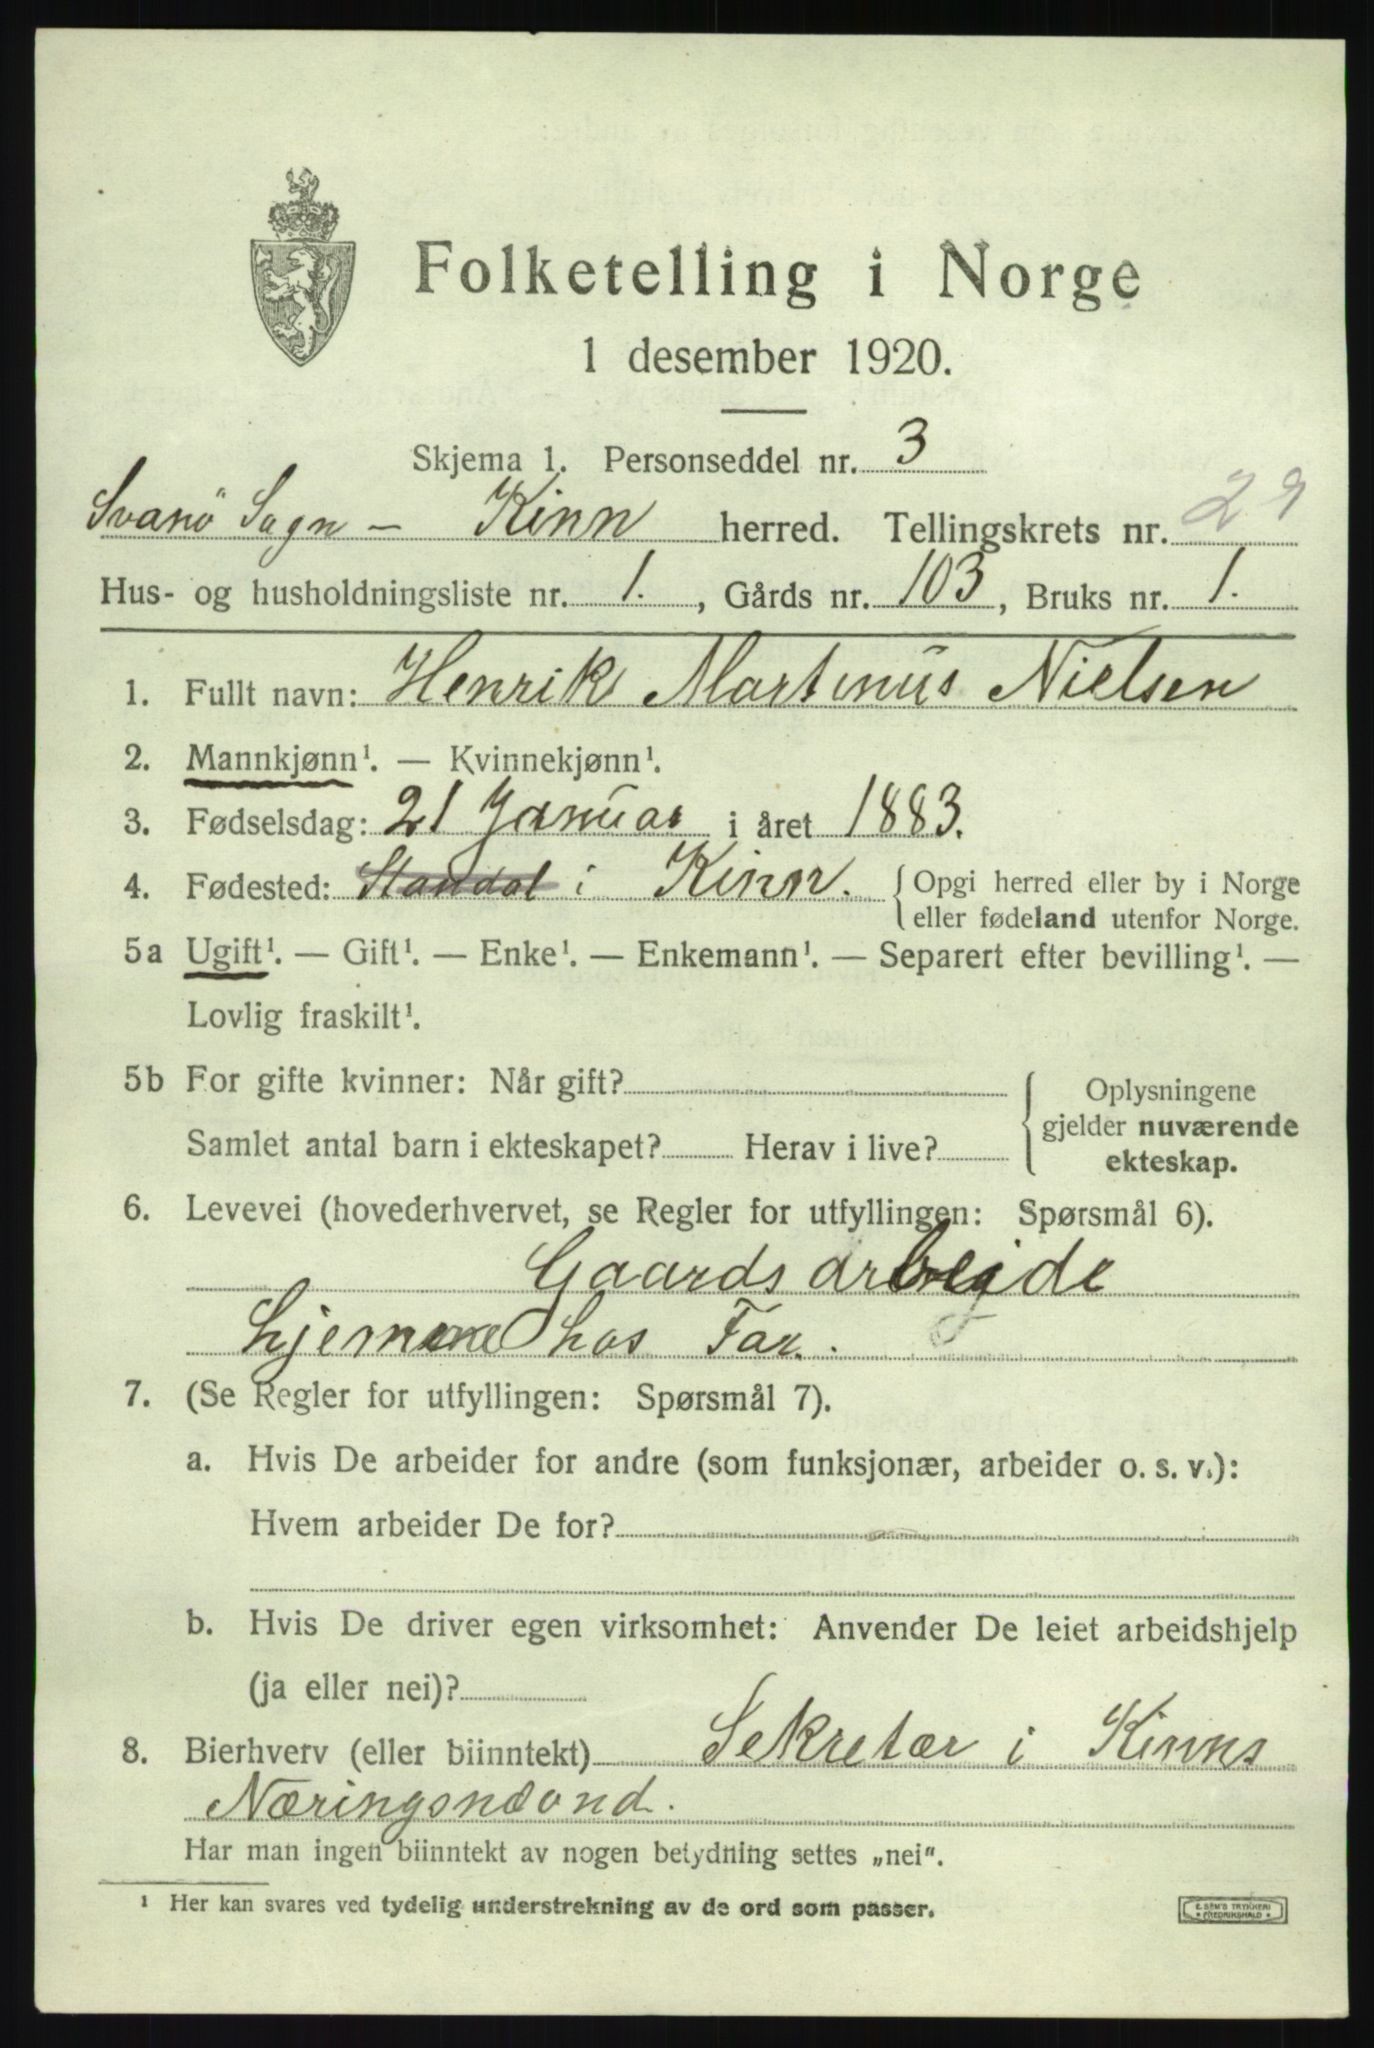 Folketelling i Norge
1 desember 1920.
Skjema 1. Personseddel nr. 3
Svanö Sogn - Kinn herred. Tellingskrets nr. 29
Hus- og husholdningsliste nr. 1. , Gårds nr. 103, Bruks nr. 1.
1. Fullt navn: Henrik Martinus Nielsen
2. Mannkjønn¹. — Kvinnekjønn¹.
3. Fødselsdag: 21 Januar i året 1883.
4. Fødested: Standal i Kinn. { Opgi herred eller by i Norge
eller fødeland utenfor Norge.
5a Ugift¹. — Gift¹. — Enke¹. — Enkemann¹. — Separert efter bevilling¹. —
Lovlig fraskilt¹.
5b For gifte kvinner: Når gift?
Samlet antal barn i ekteskapet? Herav i live?
Oplysningene
gjelder nuværende
ekteskap.
6. Levevei (hovederhvervet, se Regler for utfyllingen: Spørsmål 6).
Gaardsarbeide
hjemme hos Far.
7. (Se Regler for utfyllingen: Spørsmål 7).
a. Hvis De arbeider for andre (som funksjonær, arbeider o. s. v.):
Hvem arbeider De for?
b. Hvis De driver egen virksomhet: Anvender De leiet arbeidshjelp
(ja eller nei)?
8. Bierhverv (eller biinntekt) Sekretær i Kinns
Næringsnævnd.
Har man ingen biinntekt av nogen betydning settes „nei".
¹ Her kan svares ved tydelig understrekning av de ord som passer.
E. SEM'S TRYKKERI
* FREDRIKSHALD *